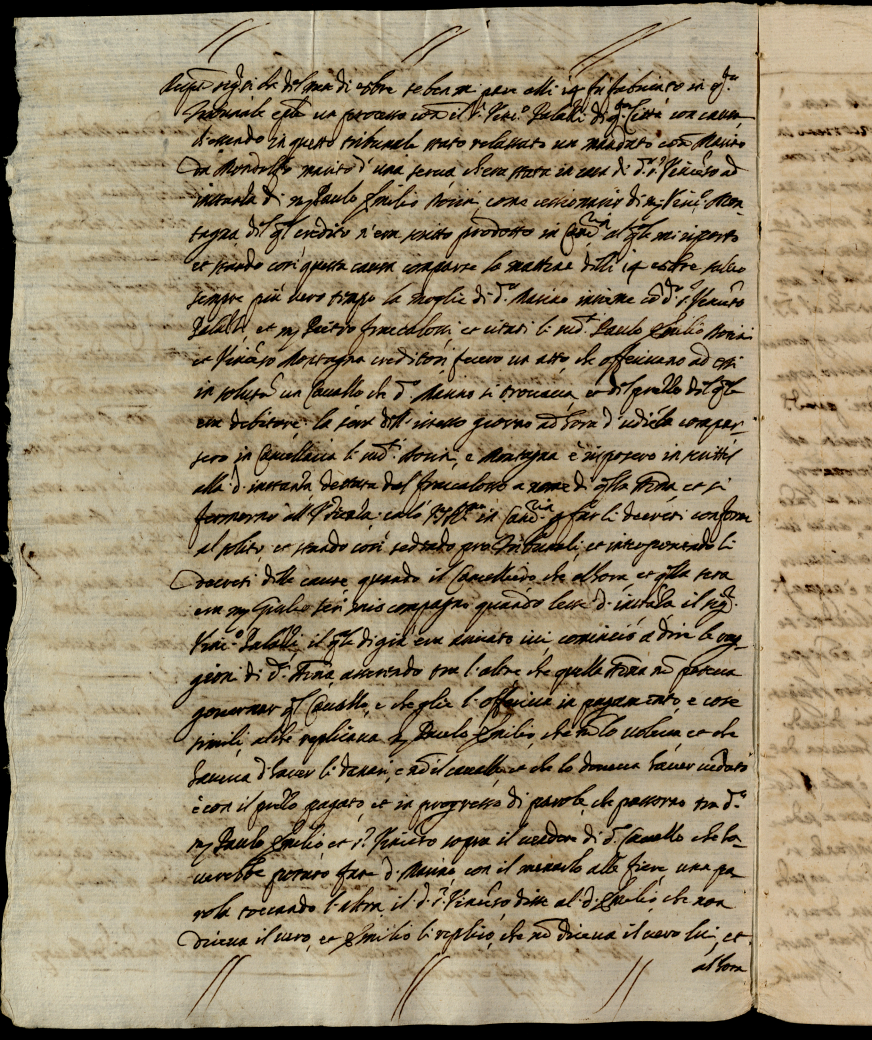 che del mese di ottobre se ben mi pare alli 14 fu fabricato in q.to
Tribunale un processo con il s.r Vinc.o Palatti di q.ta Città con causa
essendo in questo tribunale stato relassato un mandato con. Marino
da Mondolfo marito d'una serva, che era stata in casa di d.o s.r Vincenzo ad
instanza di m. Paulo Emilio come cessionario di m. Vinc.o Mon
tagna del q.l credito n'era scritto prodotto in Canc.ria al q.le mi riporto
et stando così questa causa comparse la mattina delli 14 ottobre salvo
sempre più vero tempo la moglie di d.o Marino insieme con d.o s.r Vincenzo
Palatti, et m. Pietro et citati li sud.i Paulo Emilio
et Vincenzo Montagna creditori fecero un atto che offerivano ad essi
in solutum un Cavallo che d.o Marino si trovava, et del prezzo del q.le
era debitore. la sera dell'istesso giorno ad hora d'udienza compar
sero in Cancellaria li sud.i e Montagna e risposero in scritti
alla d. instanza dettata dal a nome di q.lla donna et si
fermorno all'Udienza. calò in Canc.ria p. far li decreti conforme
al solito, et stando così sedendo pro Tribunali, et interponendo li
decreti delle cause quando il Cancelliero che alhora et q.lla sera
era m. Giulio mio compagno quando lesse d. instanza il sig.r
Vinc.o Palatti il q.le di già era arrivato ivi, cominciò a dire le rag
gioni di d. donna, asserendo tra l'altre che quella donna nò poteva
governar q.l Cavallo, e che glie l'offeriva in pagamento, e cose
simili, alche replicava m. Paulo Emilio, che nò lo voleva, et che
haveva d'haver li danari, e nò il cavallo, et che lo doveva haver venduto
e con il prezzo pagato, et in progresso di parole, che passorno tra d.o
m. Paulo Emilio et s.r Vincenzo sopra il vendere di d.o Cavallo che ha
verebbe potuto fare d. Marino con il menarlo alle fiere, una pa
rola toccando l'altra, il d. s.r Vincenzo disse al d. Emilio che non
diceva il vero, et Emilio li replicò, che nò diceva il vero lui, et
alhora